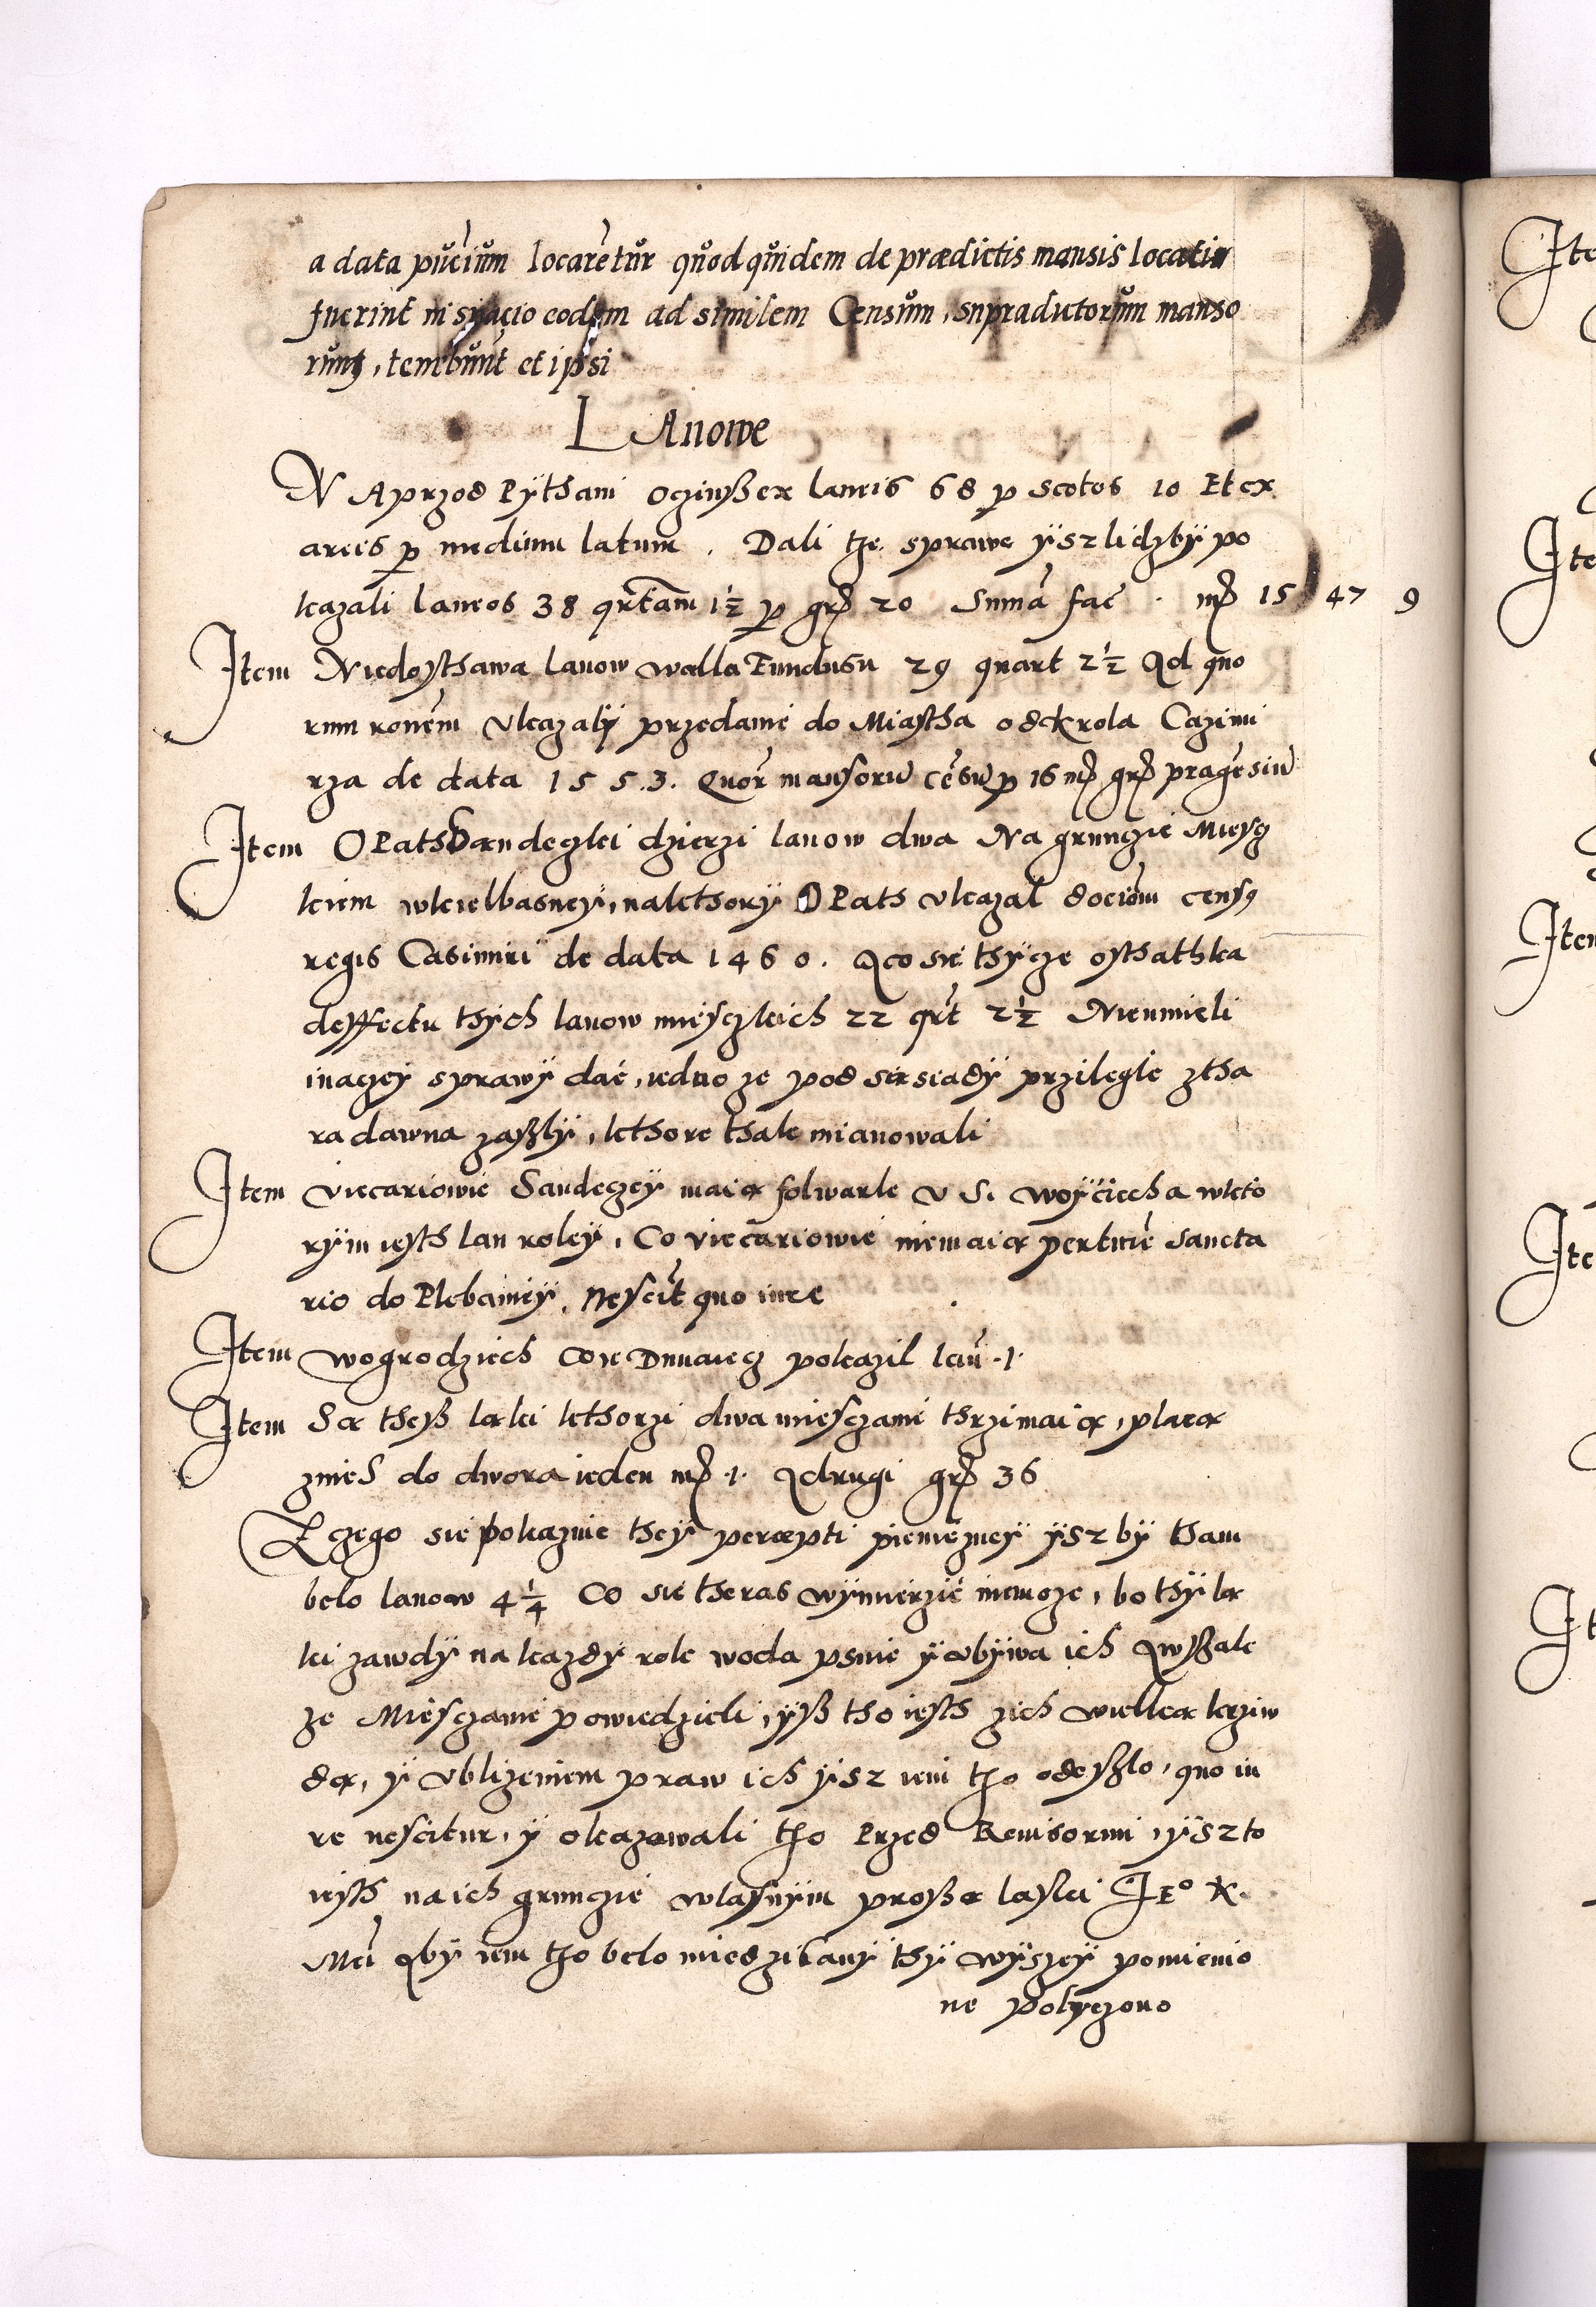 a data pñcium locarētur quod quidem de prædictis mansis locati
fuerint in spacio eodem ad similem Censum, supradictorum manso
rum, tenebunt et ipsi
LAnowe
NAprzod Pÿthani oczinsz ex laneis 68 p scotos 10 Et ex
areis p medium latum. Dali the sprawe ÿsz liczbÿ po
kazali laneos 38 qrtam 1½ p grᵱ 20 Summa fac. mᵱ 15 47 9
Item Niedosthawa lanow wedla Fundusu 29 quart 2½ Ad quo
rum ronem vkazalÿ przedanie do Miastha od krola Cazimi
rza de data 1553. Quor mansoru cesu p 16 mᵱ grᵱ pragēsiu
Item OPath Sandeczki dzierzi lanow dwa Na grunczie Mieysz
kiem wkielbasneÿ, na kthorÿ OPath vkazal docium census
regis Casimiri de data 1460. A co sie thÿcze osthathka
deffectu thÿch lanow mieÿsczkich 22 qrt 2½ Nieumieli
inaczeÿ sprawÿ dac, iedno ze pod sirsiadÿ przilegle ztha
ra dawna zaszlÿ, kthore thak mianowali
Item Viccariowie Sandeczeÿ maią folwark v S. Woÿciecha wkto
rÿm iesth lan roleÿ, Co viccariowie niemaią pertinē sancta
rio do Plebaniÿ, Nescit quo iure
Item wogrodziech Coie Dunaiecz pokazil lan .1.
Item Są thesz ląki kthorzi dwa miesczanie thrzimaią, placą
znich do dwora ieden mᵱ .1. A drugi grᵱ 36
Z czego sie pokazuie theÿ percepti pieniezneÿ ÿsz bÿ tham
belo lanow 4¼ Co sie theras wÿmierzic niemoze, bo thÿ lą
ki zawdÿ na kazdÿ rok woda psuie ÿ vbÿwa ich A wszak
ze Miesczanie powiedzieli, ÿsz tho iesth zich wielką krziw
dą, ÿ vblizeniem praw ich ÿsz iem tho odeszlo, quo iu
re nescitur, ÿ okazowali tho Przed Rewisormi, ÿsz to
iesth na ich grunczie wlasnÿm proszą laski JEº K.
Mci abÿ iem tho belo miedzi lanÿ thÿ wÿszeÿ pomienio
ne policzono